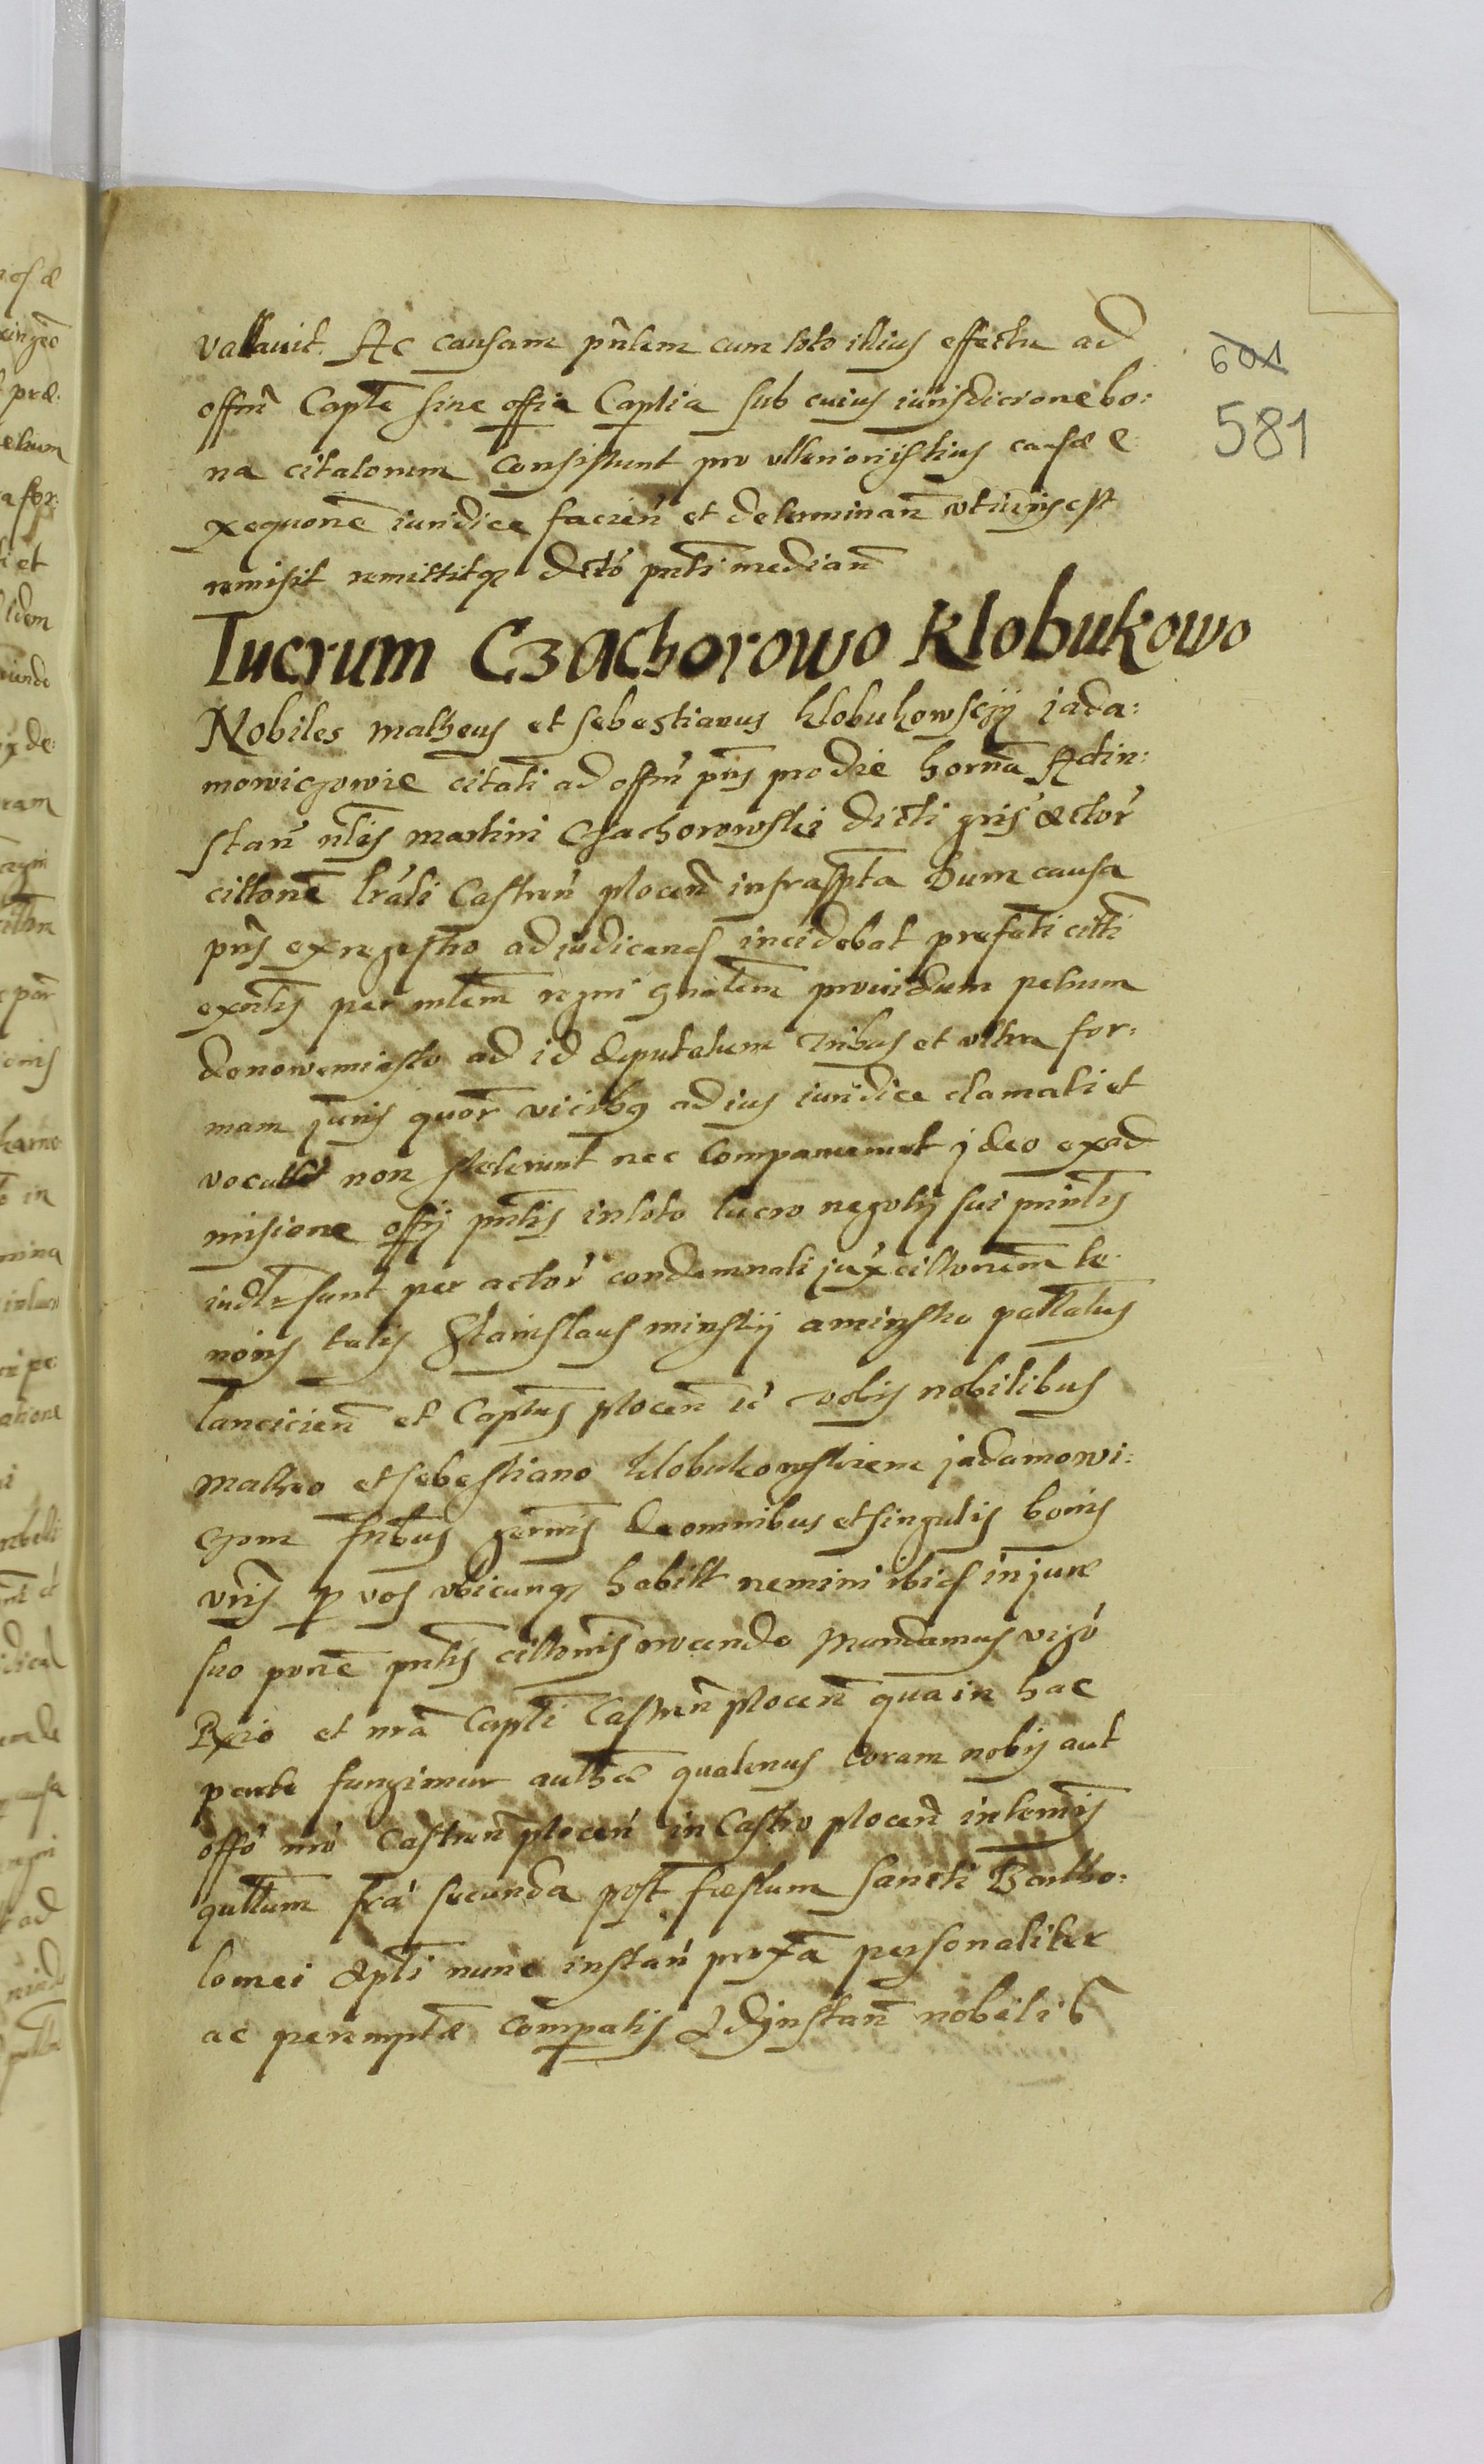 vallauit. Ac causam pñtem cum toto illius effectu ad
offm̃ Capte sine offia Captia sub cuius iurisdicione bo:
na citatorum consistunt pro ulteriori istius causæ e:
xequonẽ iuridice facień et determinañ uti iuris est
remisit remittitq̃ dctó pñti mediañ
Lucrum Czachorowo Klobukowo
Nobiles matheus et sebestianus klobukowscÿ jada:
mowiczowie citati ad offm̃ pñs pro die horñа Ad in:
stañ nlis martini Czachorowski dicti gris actor
cittonẽ lrali Castreń plocen̄ infrascpta Dum causa
pñs ex regestro ad iudicand̃ incidebat prefati citti
exñtis per mlem regni gñalem prouidum petrum
de nowemiasto ad id deputatum tribus et ultra for:
mam juris quor̃ vicibq̃ ad ius iuridice clamati et
vocati non steterunt nec comparuerunt jdeo ex ad
misione offÿ pñtis in toto lucro negotÿ sui prinlis
iudlr sunt per actor̃ condemnati jux cittonem te
noris talis Stanislaus minskÿ a minsko pallatus
Lancicieñ et Captus plocen̄ ic̃ vobis nobilibus
Matheo et sebestiano klobukowskiem jadamowi:
czom fribus germis de omnibus et singulis bonis
vris p̱ vos vbicunq̃ habitt nemini ibid̃ in jure
suo ponẽ pñtis cittonis vocando mandamus vigó
Rxio et nrã Capti Castreñ plocen̄ qua in hac
parte fungimur authẽ quatenus coram nobis aut
offó nró Castreñ plocen̄ in Castro plocen̄ in termis
qultum fra secunda post festum Sancti Bartho:
lomei Apti nunc instań proxã personaliter
ac peremptæ compatis Ad jnstañ nobilis
601
581